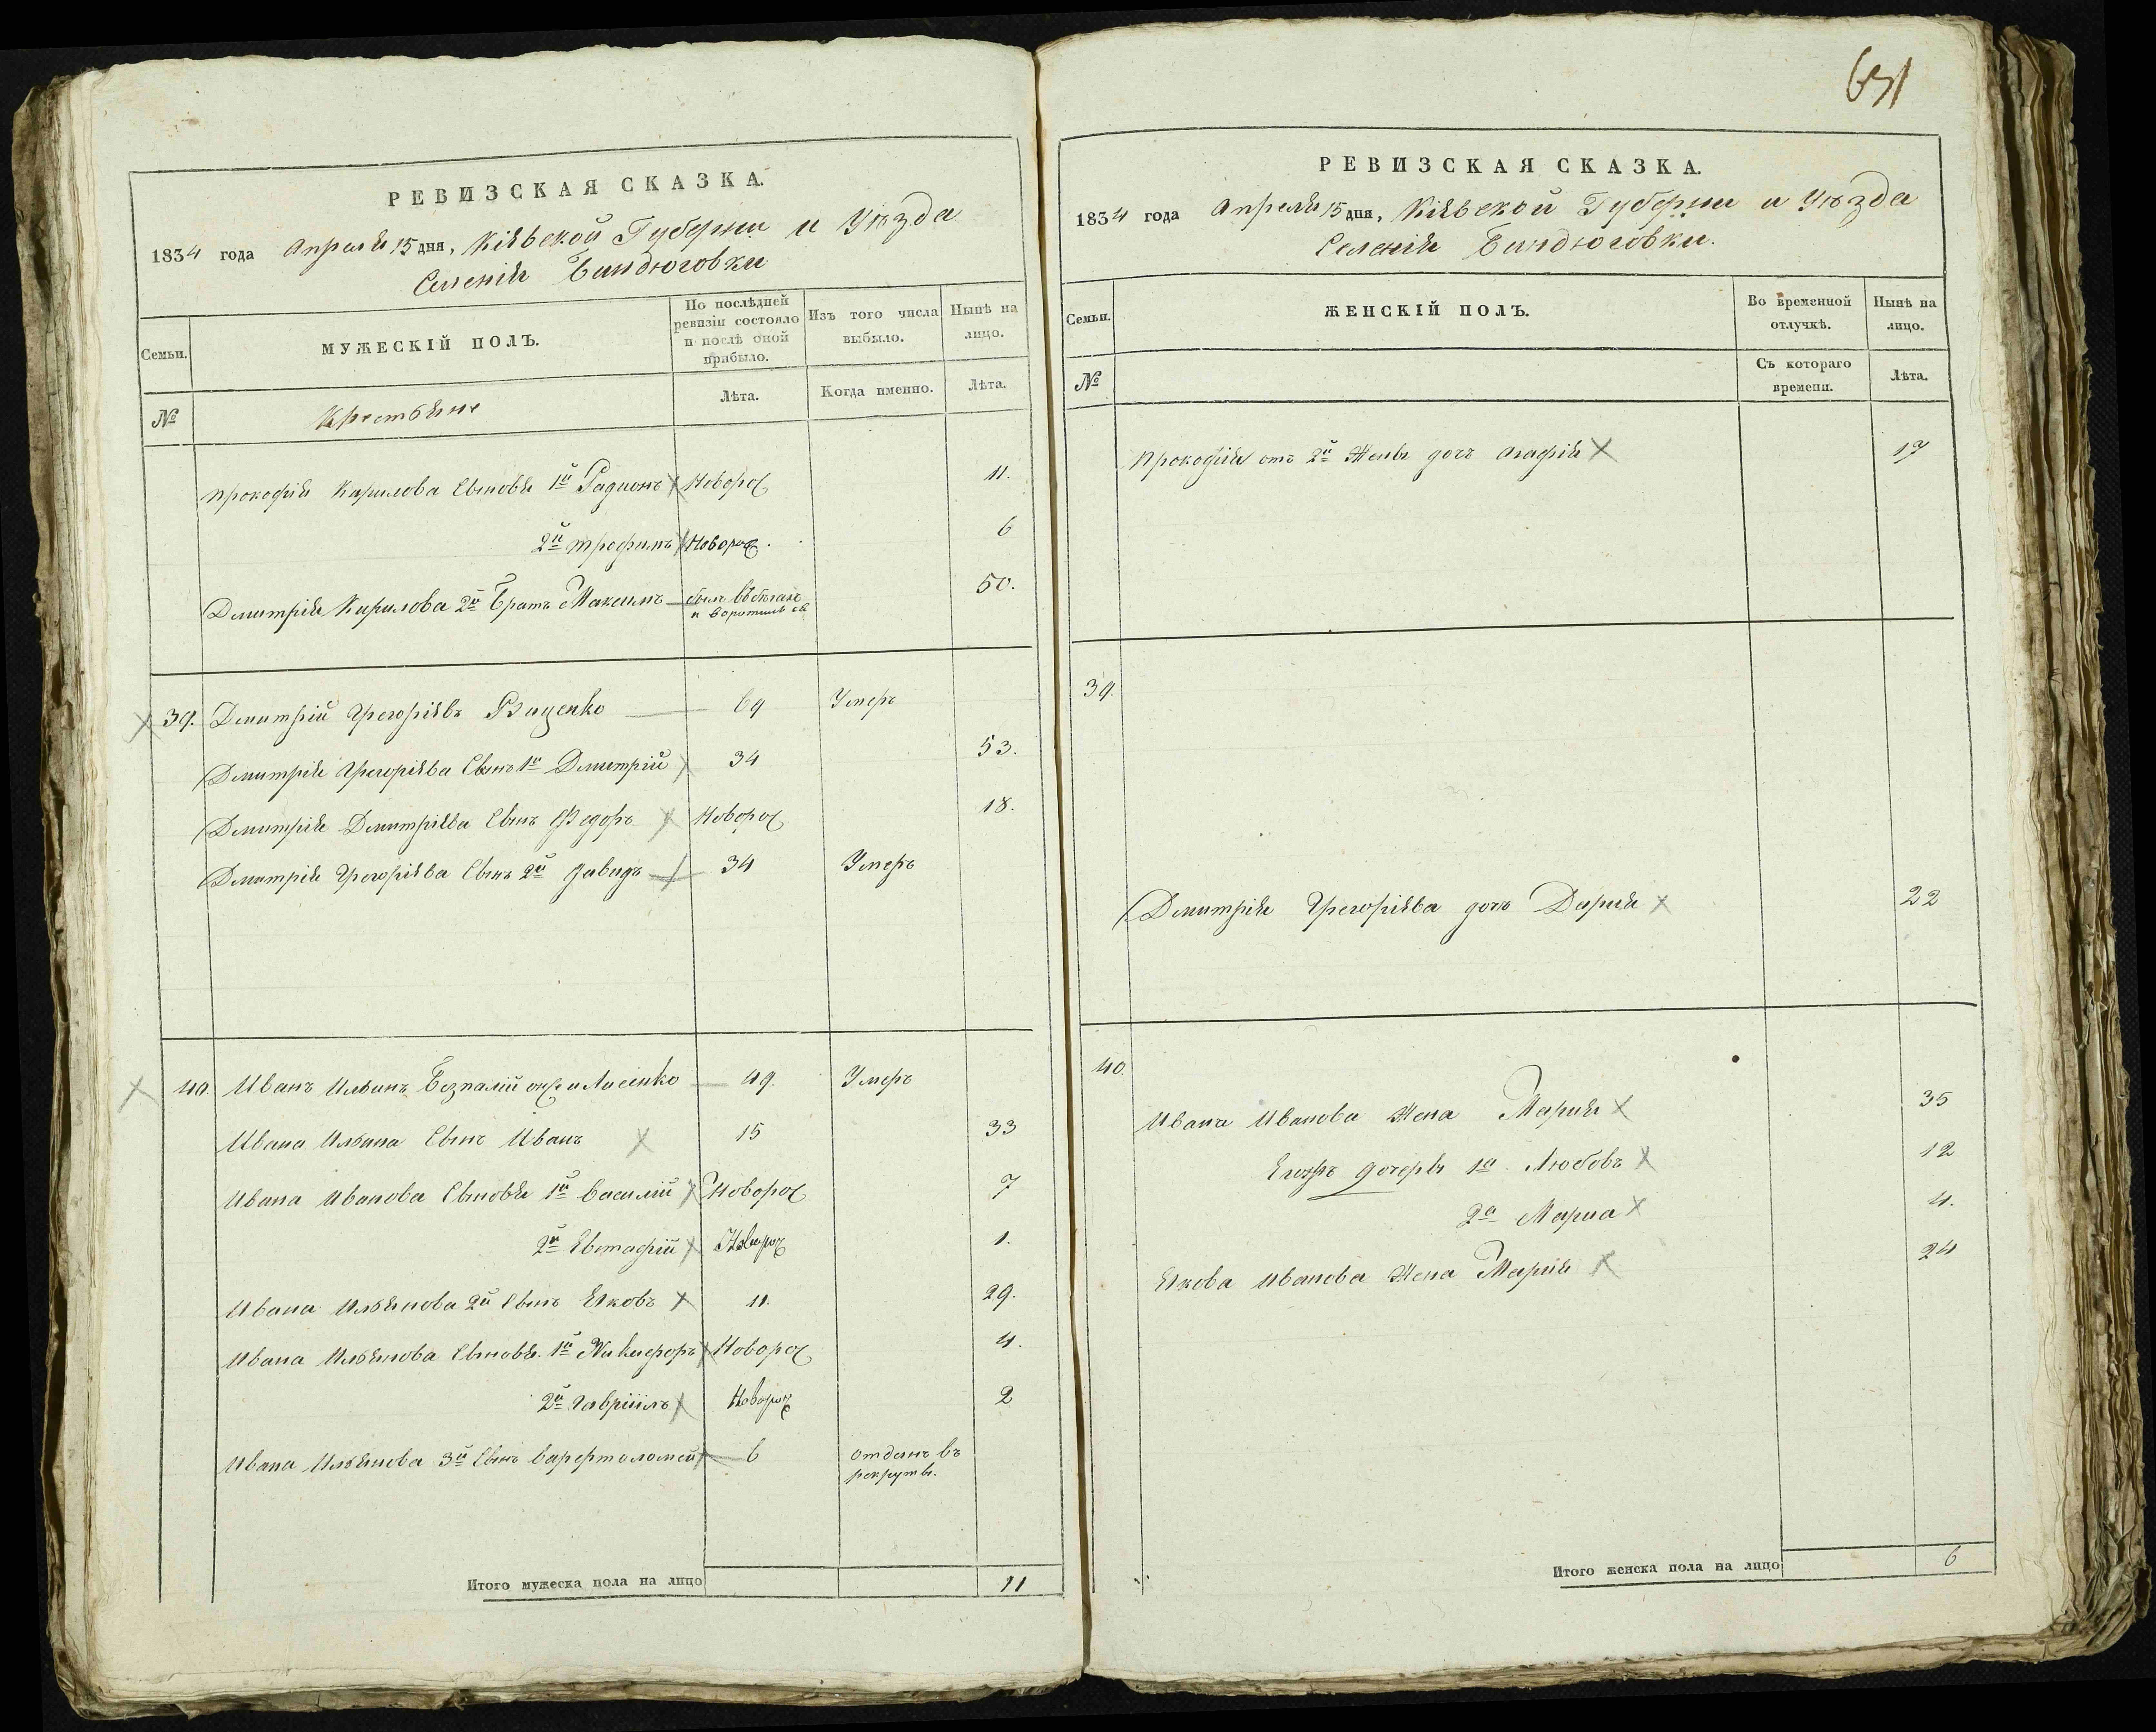 631
РЕВИЗСКАЯ СКАЗКА.
1834 года Апреля 15 дня, Кіевской Губернии и Уѣзда
Селенія Бандюговки
Семьи.
МУЖЕСКІЙ ПОЛЪ.
По послѣдней ревизіи состояло и послѣ оной прибыло.
Изъ того числа выбыло.
Нынѣ на лицо.
№
Крестьяне
Лѣта.
Когда именно.
Лѣта.
Прокофія Кирилова Сыновья 1й Радионъ Новорож 11.
2й Трофимъ Новорож. 6
Дмитрія Кирилова 2й Братъ Максимъ былъ въ бегахъ и воротился 50.
39. Дмитрій Григоріевъ 69 Умеръ
Дмитрія Григоріева Сынъ 1й Дмитрій 34 53.
Дмитрія Дмитріева Сынъ Федоръ Новорож 18.
Дмитрія Григоріева Сынъ 2й Давидъ 34 Умеръ
40. Иванъ Ильинъ Безпалій онже и Лисенко 49. Умеръ
Ивана Ильина Сынъ Иванъ 15 33
Ивана Иванова Сыновья 1й Василій Новорож 7
2й Евстафій Новорож 1.
Ивана Ильянова 2й Сынъ Яковъ 11. 29.
Ивана Ильянова Сыновья. 1й Никифоръ Новорож 4.
2й Гавріилъ Новорож 2
Ивана Ильянова 3й Сынъ Варфтоломей 6 отданъ въ рекруты.
Итого мужеска пола на лицо 11
РЕВИЗСКАЯ СКАЗКА.
1834 года Апреля 15 дня, Кіевской Губернии и Уѣзда
Селенія Бандюговки.
Семьи.
ЖЕНСКІЙ ПОЛЪ.
Во временной отлучкѣ.
Нынѣ на лицо.
№
Съ котораго времени.
Лѣта.
Прокофія отъ 2й Жены дочь Агафія 17
39.
Дмитрія Григоріева дочь Дария 22
40.
Ивана Иванова Жена Мария 35
дочеры 1я Любовъ 12
2я Мариа 4.
Якова Иванова Жена Марія 24
Итого женска пола на лицо 6